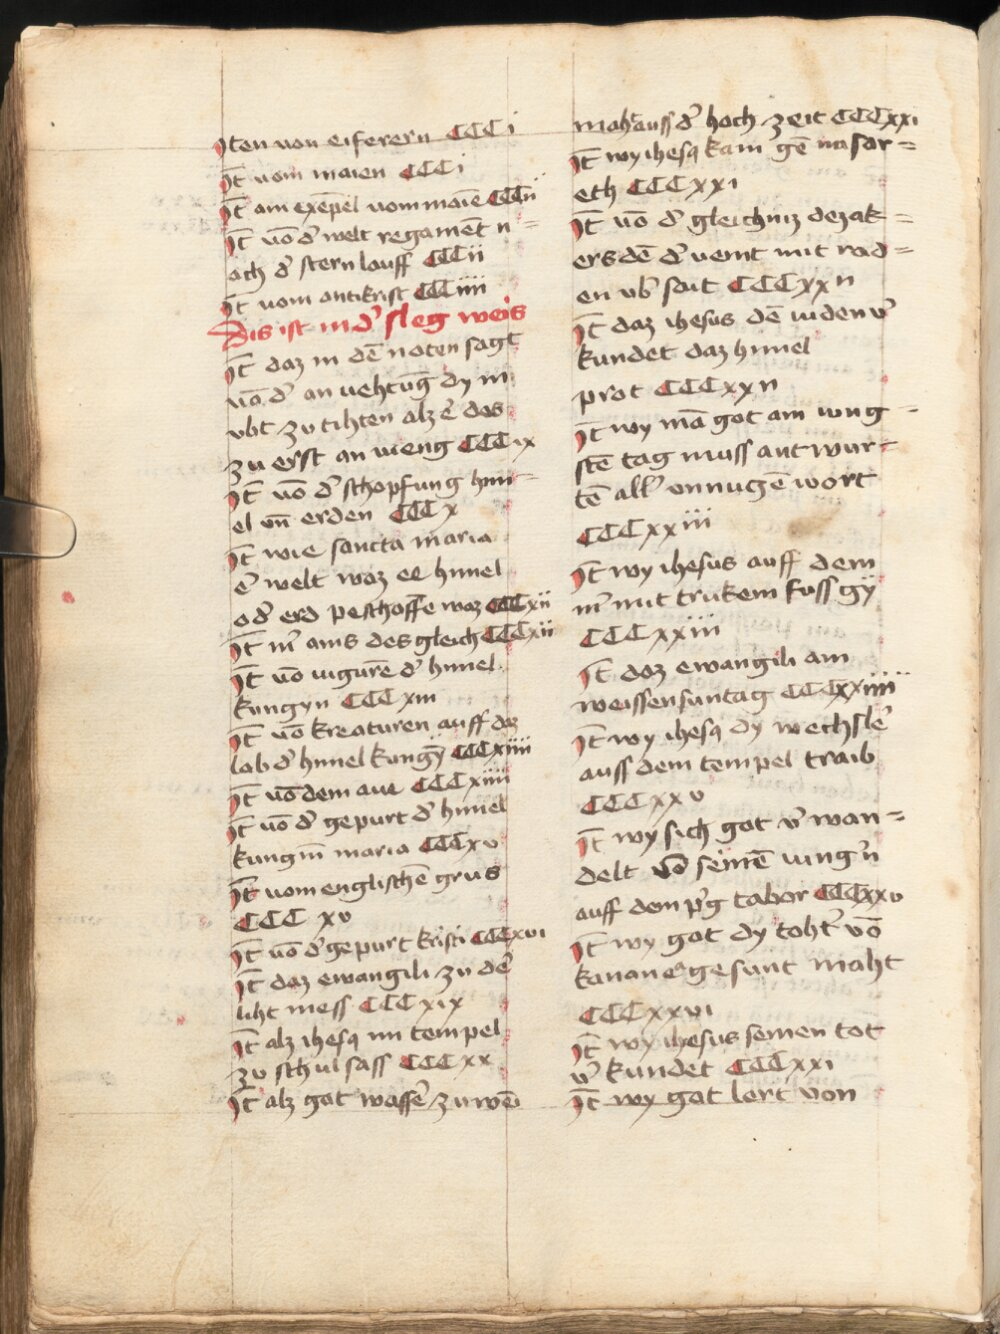 Iten von eiferern CCCi
It̄ vom maien CCCi
It̄ am exēpel vom maiē CCCii
It̄ vō d̓ welt regamēt n=
ach d̓ stern lauff CCCii
It̄ vom antikrist CCCiiii
Dis ist in d̓ sleg weis
It̄ daz in dē noten sagt
vō d̓ an vehtūg dy in
vbt zu tihten alz ē das
zu erst an vieng CCCix
It̄ vō d̓ schopfung himi=
el vn̄ erden CCCx
It̄ wie sancta maria
ē welt waz ee himel
od̓ erd peschaffē waz CCCxii
It̄ m̄ ains des gleich CCCxii
It̄ vō vigurē d̓ himel
kungyn CCCxiii
It̄ vō kreaturen auff daz
lab d̓ himel kungȳ CCCxiiii
It̄ vō dem aue CCCxiiii
It̄ vō d̓ gepurt d̓ himel
kungin̄ maria CCCxv
It̄ vom englischē grus
CCC xv
It̄ vō d̓ gepurt kristi CCCxvi
It̄ daz ewangili zu dē
liht mess CCCxix
It̄ alz ihesꝗ im tempel
zu schul sass CCCxx
It̄ alz got wasser̄ zu wē
maht auss d̓ hoch zeit CCCxxi
It̄ wy ihesꝗ kam gē nasar=
eth CCCxxi
It̄ vō d̓ gleichniz dez ak=
ers dē d̓ veint mit rad=
en vb̓ sait CCCxxii
It̄ daz ihesus dē iuden v̓
kundet daz himel
prot CCCxxii
It̄ wy mā got am iung=
stē tag muss antwur=
tē all̓ vnnugē wort
CCCxxiii
It̄ wy ihesus auff dem
m̓ mit trukem fuss gÿ
CCCxxiiii
It̄ daz ewangili am
weissen suntag CCCxxiiii
It̄ wy ihesꝗ dy wechsler̄
auss dem tempel traib
CCCxxv
It̄ wy sich got v̓ wan=
delt vō seinē iung̓n
auff dem p̓g tabor CCCxxv
It̄ wy got dy toht̓ vō
kananee gesunt maht
CCCxxvi
It̄ wy ihesus seinen tot
v̓ kundet CCCxxi
It̄ wy got lert von